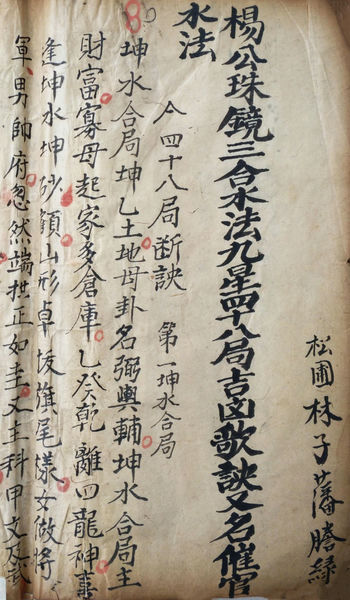 松圃林子藩謄録
楊公珠鏡三合水法九星四十八局吉凶歌訣又名催官
水法
八四十八局断訣 第一坤水合局
坤水合局坤乙土地母卦名弼輿輔坤水合局主
財富寡母起家多倉庫乙癸乾離四龍神喜
逢坤水坤砂顧山形卓拔旗尾樣女做将
軍男帥府忽然端拱正如圭又主科甲文及武